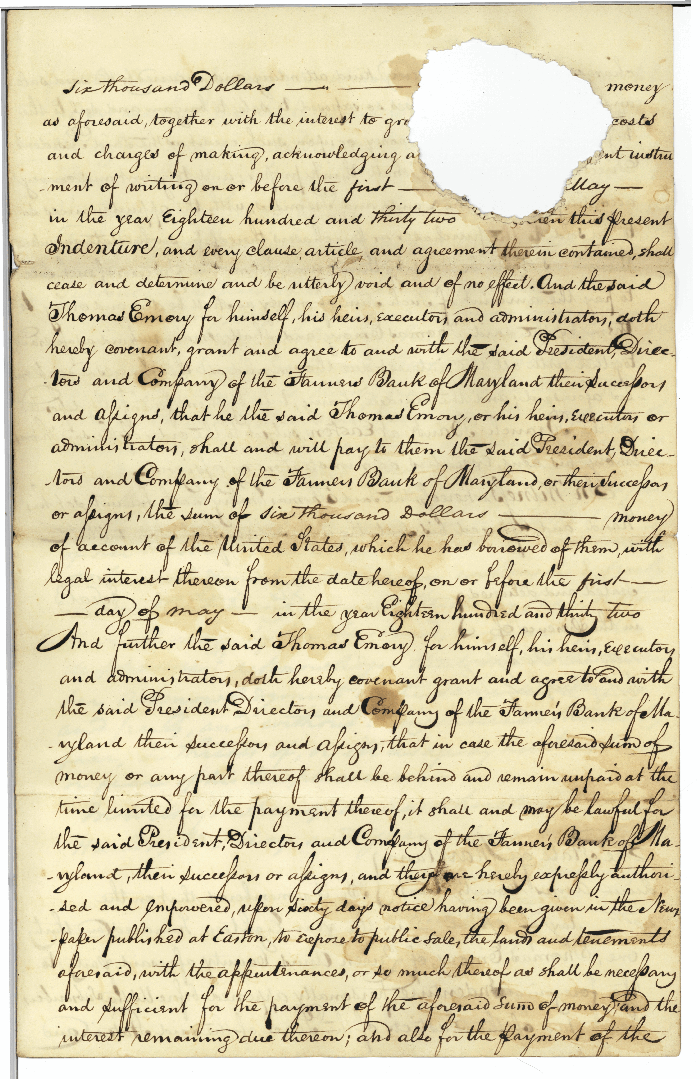 six thousand Dollars — — money
as aforesaid, together with the interest to gro costs
and charges of making, acknowledging a ent instru
-ment of writing on or before the first — May —
in the year Eighteen hundred and thirty two then this present
Indenture, and every clause, article, and agreement therein contained, shall
cease and determine and be utterly void and of no effect. And the said
Thomas Emory for himself, his heirs, executors, and administrators, doth
hereby covenant, grant and agree to and with the said President, Direc-
-tors and Company of the Farmers Bank of Maryland their successors
and assigns, that he the said Thomas Emory, or his heirs, executors or
administrators, shall and will pay to them the said President, Direc-
-tors and Company of the Farmers Bank of Maryland, or their successors
or assigns, the sum of six thousand Dollars — money
of account of the United States, which he has borrowed of them, with
legal interest thereon from the date hereof, on or before the first —
— day of may — in the year Eighteen hundred and thirty two
And further the said Thomas Emory for himself, his heirs, executors
and administrators, doth hereby covenant grant and agree to and with
the said President Directors and Company of the Farmers Bank of Ma-
-ryland their successors and assigns, that in case the aforesaid sum of
money or any part thereof shall be behind and remain unpaid at the
time limited for the payment thereof, it shall and may be lawful for
the said President, Directors and Company of the Farmer's Bank of Ma-
-ryland, their successors or assigns, and they are hereby expressly authori-
-sed and empowered, upon sixty days notice having been given in the News
-paper published at Easton, to expose to public sale, the lands and tenements
aforesaid, with the appurtenances, or so much thereof as shall be necessary
and sufficient for the payment of the aforesaid sum of money, and the
interest remaining due thereon; and also for the payment of the